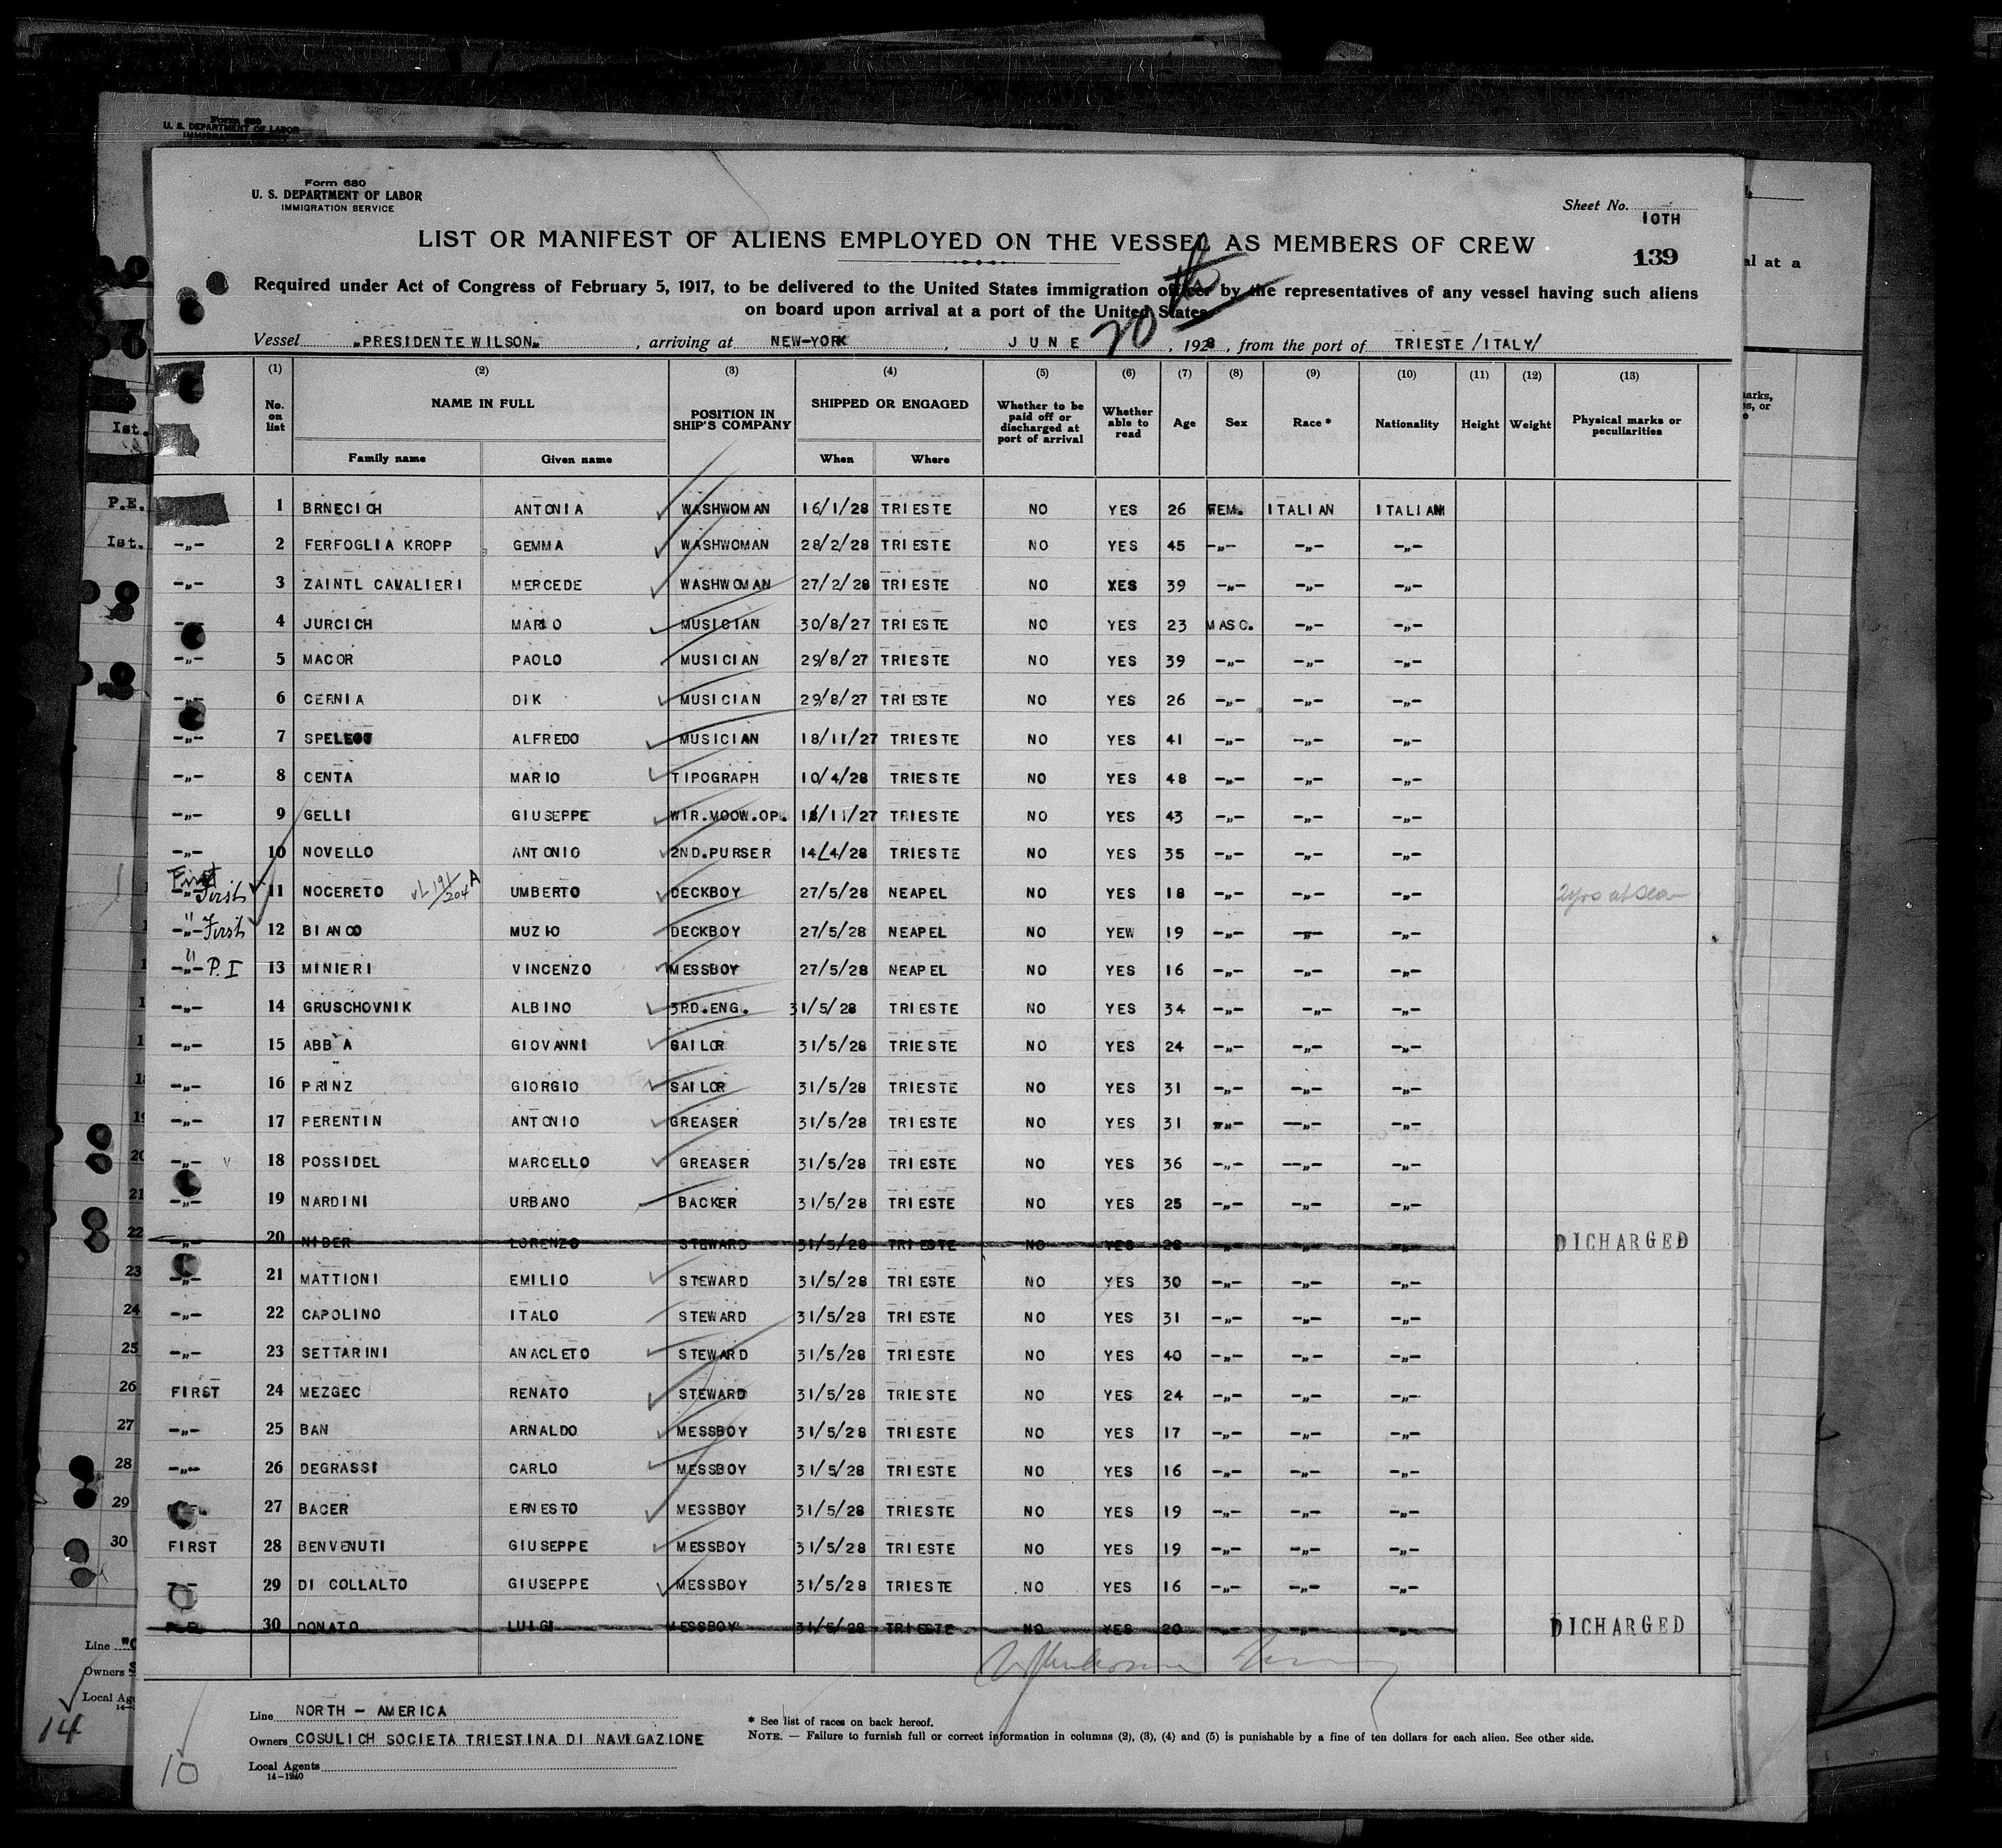 Form 680
U. S. DEPARTMENT OF LABOR
IMMIGRATION SERVICE
Sheet No.
10TH
139
LIST OR MANIFEST OF ALIENS EMPLOYED ON THE VESSEL AS MEMBERS OF CREW
Required under Act of Congress of February 5, 1917, to be delivered to the United States immigration officer by the representatives of any vessel having such aliens
on board upon arrival at a port of the United States
Vessel „PRESIDENTE WILSON„ , arriving at NEW-YORK , JUNE 20th , 1928 , from the port of TRIESTE /ITALY/
(1) (2) (3) (4) (5) (6) (7) (8) (9) (10) (11) (12) (13)
No. on list NAME IN FULL POSITION IN SHIP'S COMPANY SHIPPED OR ENGAGED Whether to be paid off or discharged at port of arrival Whether able to read Age Sex Race * Nationality Height Weight Physical marks or peculiarities
Family name Given name When Where
1 BRNECICH ANTONIA WASHWOMAN 16/1/28 TRIESTE NO YES 26 FEM. ITALIAN ITALIAN
-„- 2 FERFOGLIA KROPP GEMMA WASHWOMAN 28/2/28 TRIESTE NO YES 45 -„- -„- -„-
-„- 3 ZAINTL CAVALIERI MERCEDE WASHWOMAN 27/2/28 TRIESTE NO YES 39 -„- -„- -„-
4 JURCICH MARIO MUSICIAN 30/8/27 TRIESTE NO YES 23 MASC. -„- -„-
-„- 5 MACOR PAOLO MUSICIAN 29/8/27 TRIESTE NO YES 39 -„- -„- -„-
-„- 6 CERNIA DIK MUSICIAN 29/8/27 TRIESTE NO YES 26 -„- -„- -„-
-„- 7 ALFREDO MUSICIAN 18/11/27 TRIESTE NO YES 41 -„- -„- -„-
-„- 8 CENTA MARIO TIPOGRAPH 10/4/28 TRIESTE NO YES 48 -„- -„- -„-
-„- 9 GELLI GIUSEPPE WIR.MOOW.OP. TRIESTE NO YES 43 -„- -„- -„-
-„- 10 NOVELLO ANTONIO 2ND.PURSER 14/4/28 TRIESTE NO YES 35 -„- -„- -„-
First
-„- First 11 NOCERETO vL 191/204 A UMBERTO DECKBOY 27/5/28 NEAPEL NO YES 18 -„- -„- -„- 2yrs at sea
-„- First 12 BIANCO MUZIO DECKBOY 27/5/28 NEAPEL NO YEW 19 -„- -„- -„-
-„- P.I 13 MINIERI VINCENZO MESSBOY 27/5/28 NEAPEL NO YES 16 -„- -„- -„-
-„- 14 GRUSCHOVNIK ALBINO 3RD.ENG. 31/5/28 TRIESTE NO YES 34 -„- -„- -„-
-„- 15 ABBA GIOVANNI SAILOR 31/5/28 TRIESTE NO YES 24 -„- -„- -„-
-„- 16 PRINZ GIORGIO SAILOR 31/5/28 TRIESTE NO YES 31 -„- -„- -„-
-„- 17 PERENTIN ANTONIO GREASER 31/5/28 TRIESTE NO YES 31 -„- -„- -„-
-„- 18 POSSIDEL MARCELLO GREASER 31/5/28 TRIESTE NO YES 36 -„- -„- -„-
-„- 19 NARDINI URBANO BACKER 31/5/28 TRIESTE NO YES 25 -„- -„- -„-
-„- 20 NIDER LORENZO STEWARD 31/5/28 TRIESTE NO YES 28 -„- -„- -„- DICHARGED
-„- 21 MATTIONI EMILIO STEWARD 31/5/28 TRIESTE NO YES 30 -„- -„- -„-
-„- 22 CAPOLINO ITALO STEWARD 31/5/28 TRIESTE NO YES 31 -„- -„- -„-
-„- 23 SETTARINI ANACLETO STEWARD 31/5/28 TRIESTE NO YES 40 -„- -„- -„-
FIRST 24 MEZGEC RENATO STEWARD 31/5/28 TRIESTE NO YES 24 -„- -„- -„-
-„- 25 BAN ARNALDO MESSBOY 31/5/28 TRIESTE NO YES 17 -„- -„- -„-
-„- 26 DEGRASSI CARLO MESSBOY 31/5/28 TRIESTE NO YES 16 -„- -„- -„-
27 BACER ERNESTO MESSBOY 31/5/28 TRIESTE NO YES 19 -„- -„- -„-
FIRST 28 BENVENUTI GIUSEPPE MESSBOY 31/5/28 TRIESTE NO YES 19 -„- -„- -„-
29 DI COLLALTO GIUSEPPE MESSBOY 31/5/28 TRIESTE NO YES 16 -„- -„- -„-
P.E. 30 DONATO LUIGI MESSBOY 31/5/28 TRIESTE NO YES 20 -„- -„- -„- DICHARGED
Line NORTH - AMERICA
Owners COSULICH SOCIETA TRIESTINA DI NAVIGAZIONE
Local Agents
14-1240
* See list of races on back hereof.
NOTE. — Failure to furnish full or correct information in columns (2), (3), (4) and (5) is punishable by a fine of ten dollars for each alien. See other side.
10
Form 680
U. S. DEPARTMENT OF LABOR
Ist.
P.E.
Ist.
20
21
22
23
24
25
26
27
28
29
30
Line
Owners
Local
14
al at a